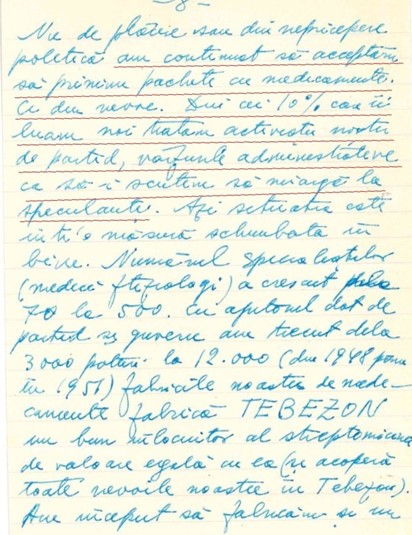 - 8 -
Nu de plăcere sau din nepricepere
politică am continuat să acceptăm
să primim pachete cu medicamente.
Ci din nevoe. Din cei 10% care îi
luam noi tratam activestii nostri
de partid, vârfurile administrative
ca să-i scutim să meargă la
speculanti. Azi situatia este
într'o măsură schimbată în
bine. Numărul specialistilor
(medici ftiziologi) a crescut dela
70 la 500. Cu ajutorul dat de
partid si guvern am trecut dela
3000 paturi la 12.000 (din 1948 până
în 1951) fabricile noastre de medi-
camente fabrică TEBEZON
un bun înlocuitor al streptomicinei
de valoare egală cu ea (si acoperă
toate nevoile noastre în Tebezon).
Am început să fabricăm si un